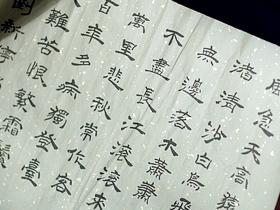 急天高猿
渚清沙白鳥飛
無邊落木蕭蕭
不盡長江滾滾來
萬里悲秋常作客
百年多病獨登臺
難苦恨繁霜鬢
新